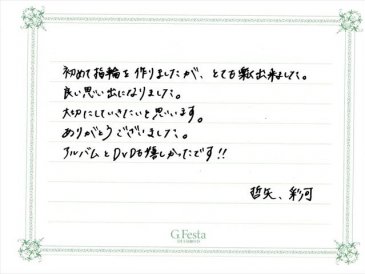 初めて指輪を作りましたが、とても楽しく出来ました。
良い思い出になりました。
大切にしていきたいと思います。
ありがとうございました。
アルバムとDVDも嬉しかったです!!
哲矢、彩可
G.Festa